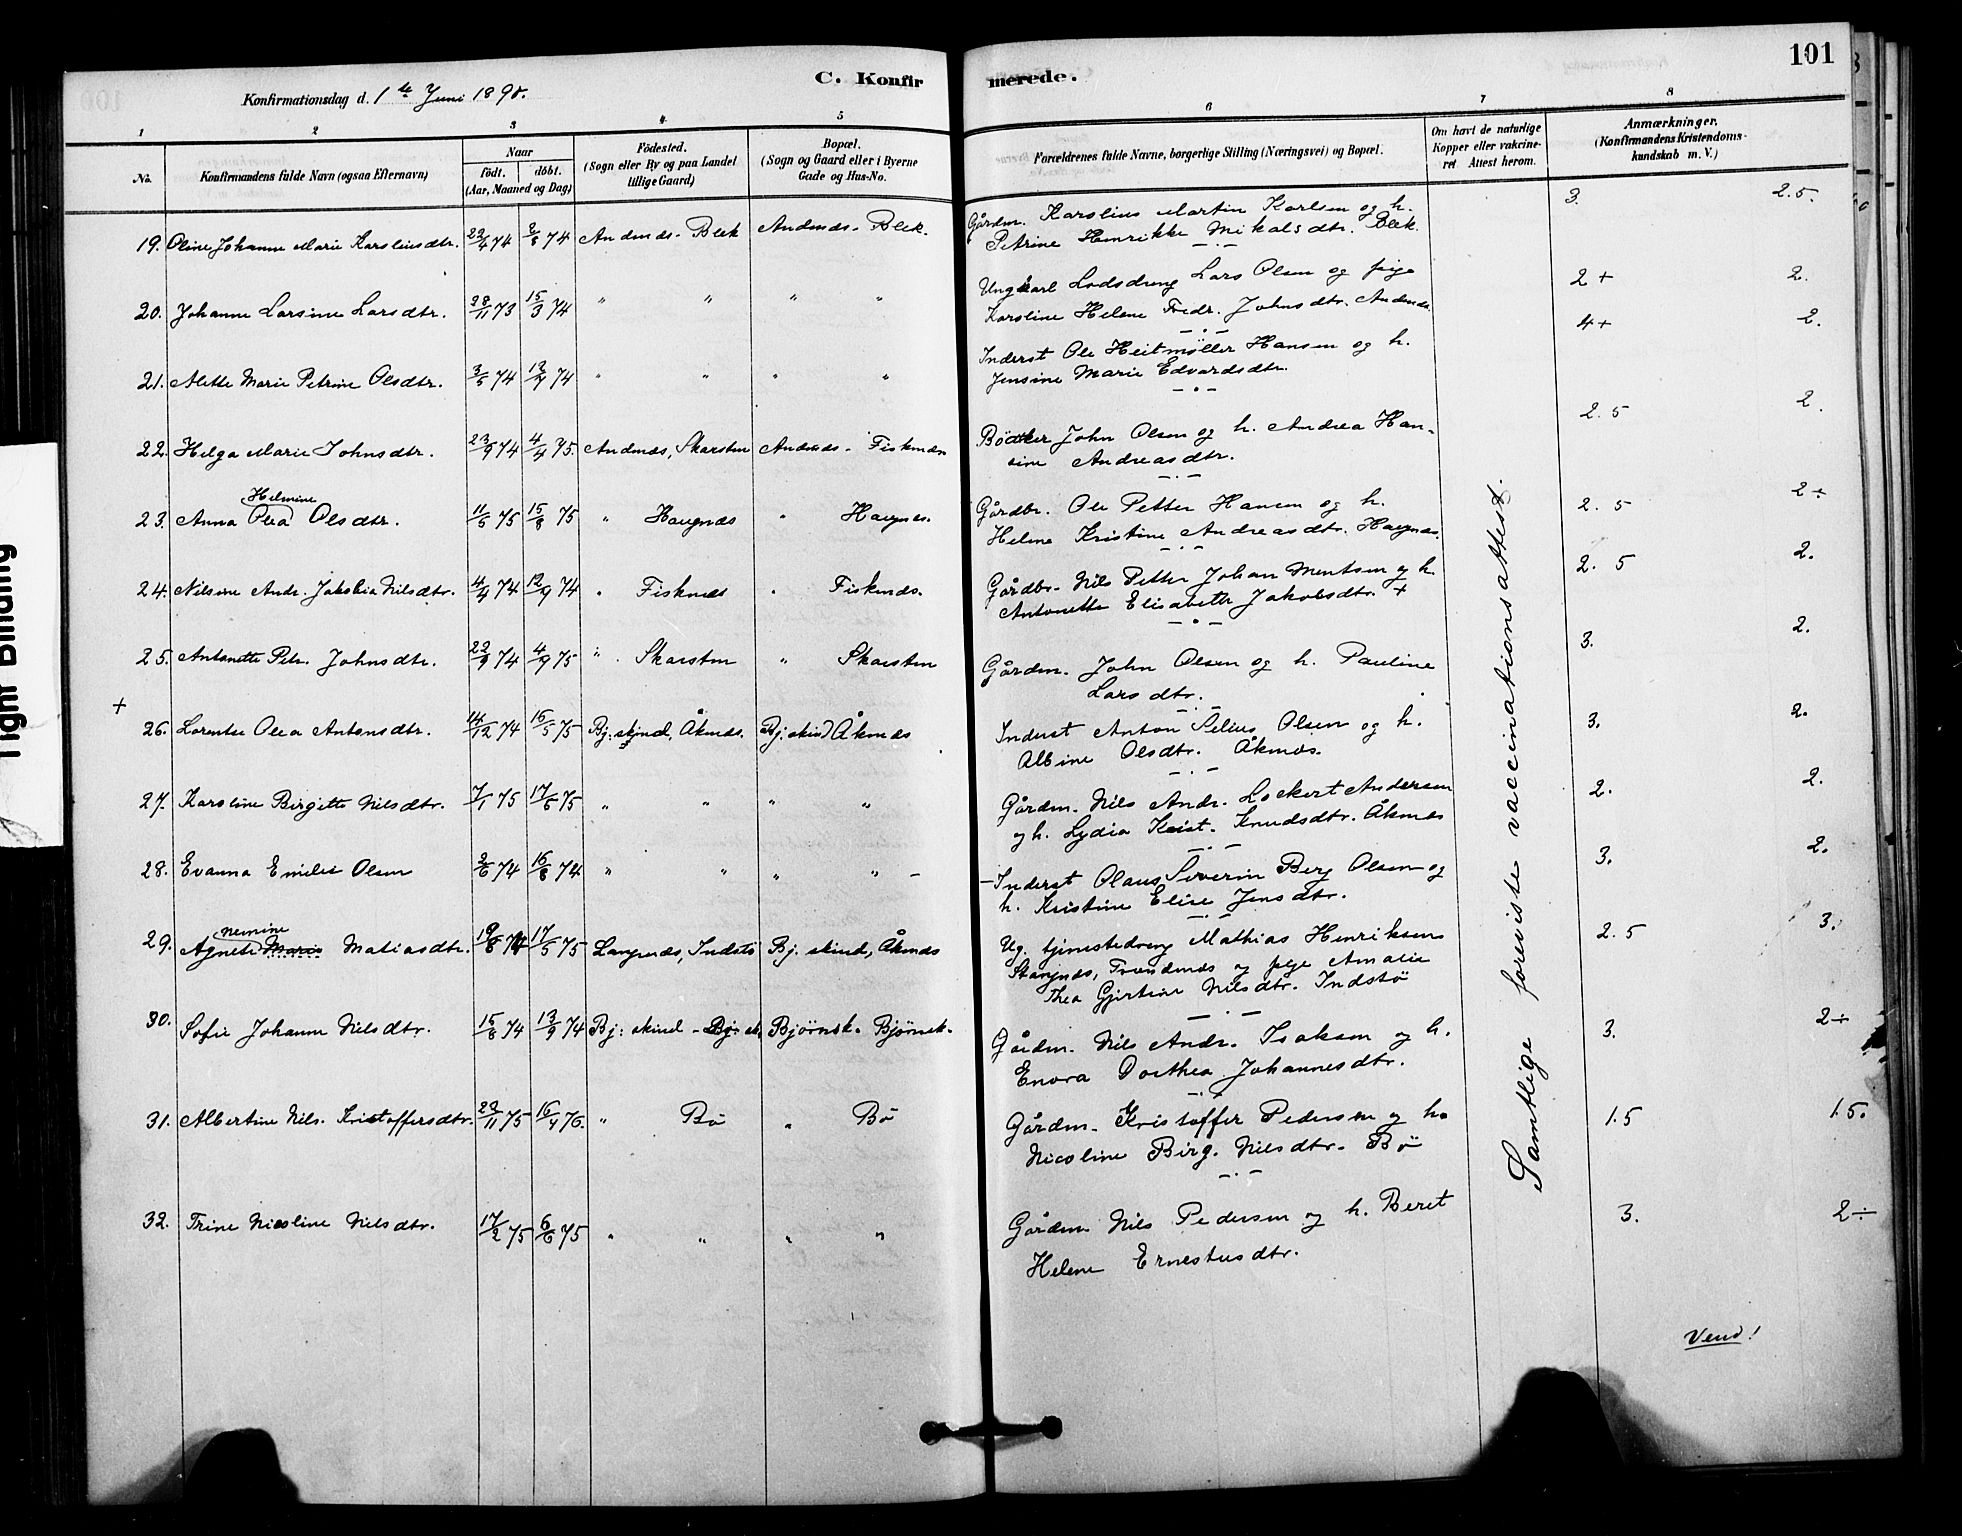 101
C. Konfirmerede.
Konfirmationsdag d. 1ste Juni 1890.
1 2 3 4 5 6 7 8
No.
Konfirmandens fulde Navn (ogsaa Efternavn)
Naar
födt. döbt.
(Aar, Maaned og Dag)
Födested.
(Sogn eller By og paa Landet
tillige Gaard)
Bopæl.
(Sogn og Gaard eller i Byerne
Gade og Hus-No.
Forældrenes fulde Navne, borgerlige Stilling (Næringsvei) og Bopæl.
Om havt de naturlige
Kopper eller vakcine-
ret Attest herom.
Anmærkninger.
(Konfirmandens Kristendoms-
kundskab m. V.)
19. Oline Johanne Marie Karoliusdtr. 22/4 74 2/8 74 Andenæs - Blek Andenæs - Blek. Gårdm. Karolius Martin Karlsen og h. 3. 2.5.
Petrine Henrikke Mikalsdtr. Blek.
20. Johanne Larsine Larsdtr. 28/11 73 15/3 74 " " " " Ungkarl Lodsdreng Lars Olsen og pige 2+ 2.
Karoline Helene Fredr. Johnsdtr. Andenæs.
21. Alette Marie Petrine Olsdtr. 3/5 74 13/9 74 " " " " Inderst Ole Heitmøller Hansen og h. 4+ 2.
Jensine Marie Edvardsdtr.
22. Helga Marie Johnsdtr. 23/9 74 4/4 75. Andenæs, Skarsten Andenæs - Fiskenæs Bødker John Olsen og h. Andrea Han- 2.5 2.
sine Andreasdtr.
Helmine
23. Anna Olea Olsdtr. 11/5 75 15/8 75 " Haugnæs " Haugnes. Gårdbr. Ole Petter Hansen og h. 2.5 2÷
Helene Kristine Andreasdtr. Haugnæs.
24. Nilsine Andr. Jakobia Nilsdtr. 4/4 74 12/9 74 " Fisknæs " Fiskenæs. Gårdbr. Nils Petter Johan Mentsen og h. 2.5 2.
Antonette Elisabeth Jakobsdtr. +
25. Antonette Petr. Johnsdtr. 22/9 74 4/9 75 " Skarsten " Skarsten Gårdm. John Olsen og h. Pauline 3. 2.
Larsdtr.
+ 26. Lorentse Olea Antonsdtr. 14/12 74 16/5 75 Bj:skind, Åknæs. Bj:skind Åknæs Inderst Anton Selius Olsen og h. 3. 2.
Albine Olsdtr. Åknæs.
27. Karoline Birgitte Nilsdtr. 7/1 75 17/5 75 " " " " Gårdm. Nils Andr. Lockert Andersen 2. 2.
og h. Lydia Krist. Knudsdtr. Åknæs
28. Evanna Emilie Olsen 2/6 74 16/8 74 " " " " – – Inderst Olaus Severin Berg Olsen og 3. 2.
h. Kristine Elise Jensdtr.
nemine
29. Agnete Marie Matiasdtr. 19/8 74 17/5 75 Langenæs, Indstø Bj. skind, Åknæs Ug. tjenestedreng Mathias Henriksen 2.5 3.
Stangnæs, Trondenæs og pige Amalie
Thea Gjertine Nilsdtr. Indstø
30. Sofie Johanne Nilsdtr. 15/8 74 13/9 74 Bj: skind - Bj: sk. Bjørnsk. Bjørnsk. Gårdm. Nils Andr. Isaksen og h. 3. 2÷
Enora Dorthea Johannesdtr.
31. Albertine Nils. Kristoffersdtr. 23/11 75 16/4 76. " Bø " Bø Gårdm. Kristoffer Pedersen og h. 1.5 1.5.
Nicoline Birg. Nilsdtr. Bø
32. Trine Nicoline Nilsdtr. 17/2 75 6/6 75 " " " " Gårdm. Nils Pedersen og h. Beret 3. 2÷
Helene Ernestusdtr.
Samtlige foreviste vaccinationsattest.
Vend!
Tight Binding